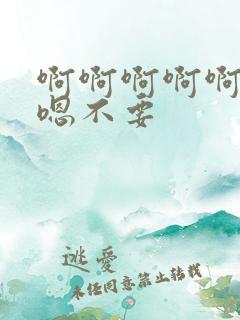 啊啊啊啊啊
嗯不要
逃爱
未经同意禁止转载